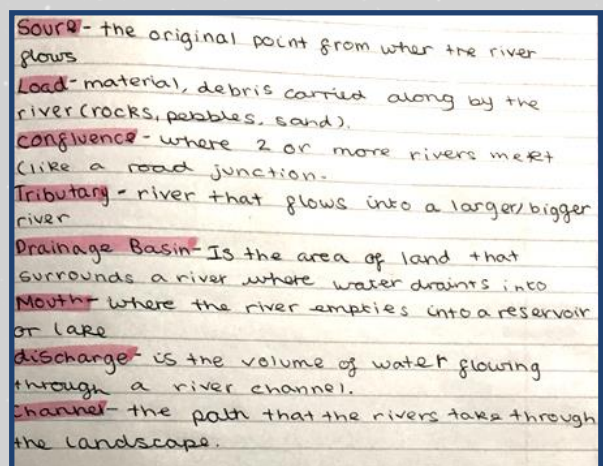 Sourc - the original point from wher the river
flows
Load - material, debris carried along by the
river (rocks, pebbles, sand).
confluence - where 2 or more rivers meet
(like a road junction.
Tributary - river that flows into a larger/bigger
river
Drainage Basin - Is the area of land that
surrounds a river where water draints into
Mouth - where the river empties into a reservoir
or lake
discharge - is the volume of water flowing
through a river channel.
Channel - the path that the rivers take through
the landscape.